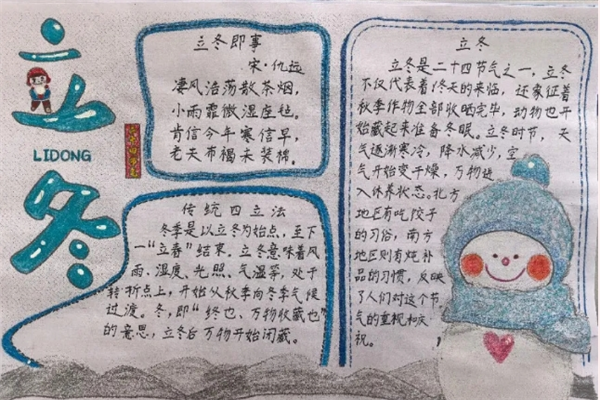 立冬
LIDONG
立冬即事
宋·仇远
凄风浩荡散茶烟，
小雨霏微湿座毡。
肯信今年寒信早，
老夫布褐未装棉。
传统四立法
冬季是以立冬为始点，至下
一“立春”结束。立冬意味着风
雨、湿度、光照、气温等，处于
转折点上，开始从秋季向冬季气候
过渡。冬，即“终也、万物收藏也”
的意思，立冬后万物开始闭藏。
立冬
立冬是二十四节气之一，立冬
不仅代表着冬天的来临，还象征着
秋季作物全部收晒完毕，动物也开
始藏起来准备冬眠。立冬时节，天
气逐渐寒冷，降水减少，空
气开始变干燥，万物进
入休养状态。北方
地区有吃饺子
的习俗，南方
地区则有炖补
品的习惯，反映
了人们对这个节
气的重视和庆
祝。